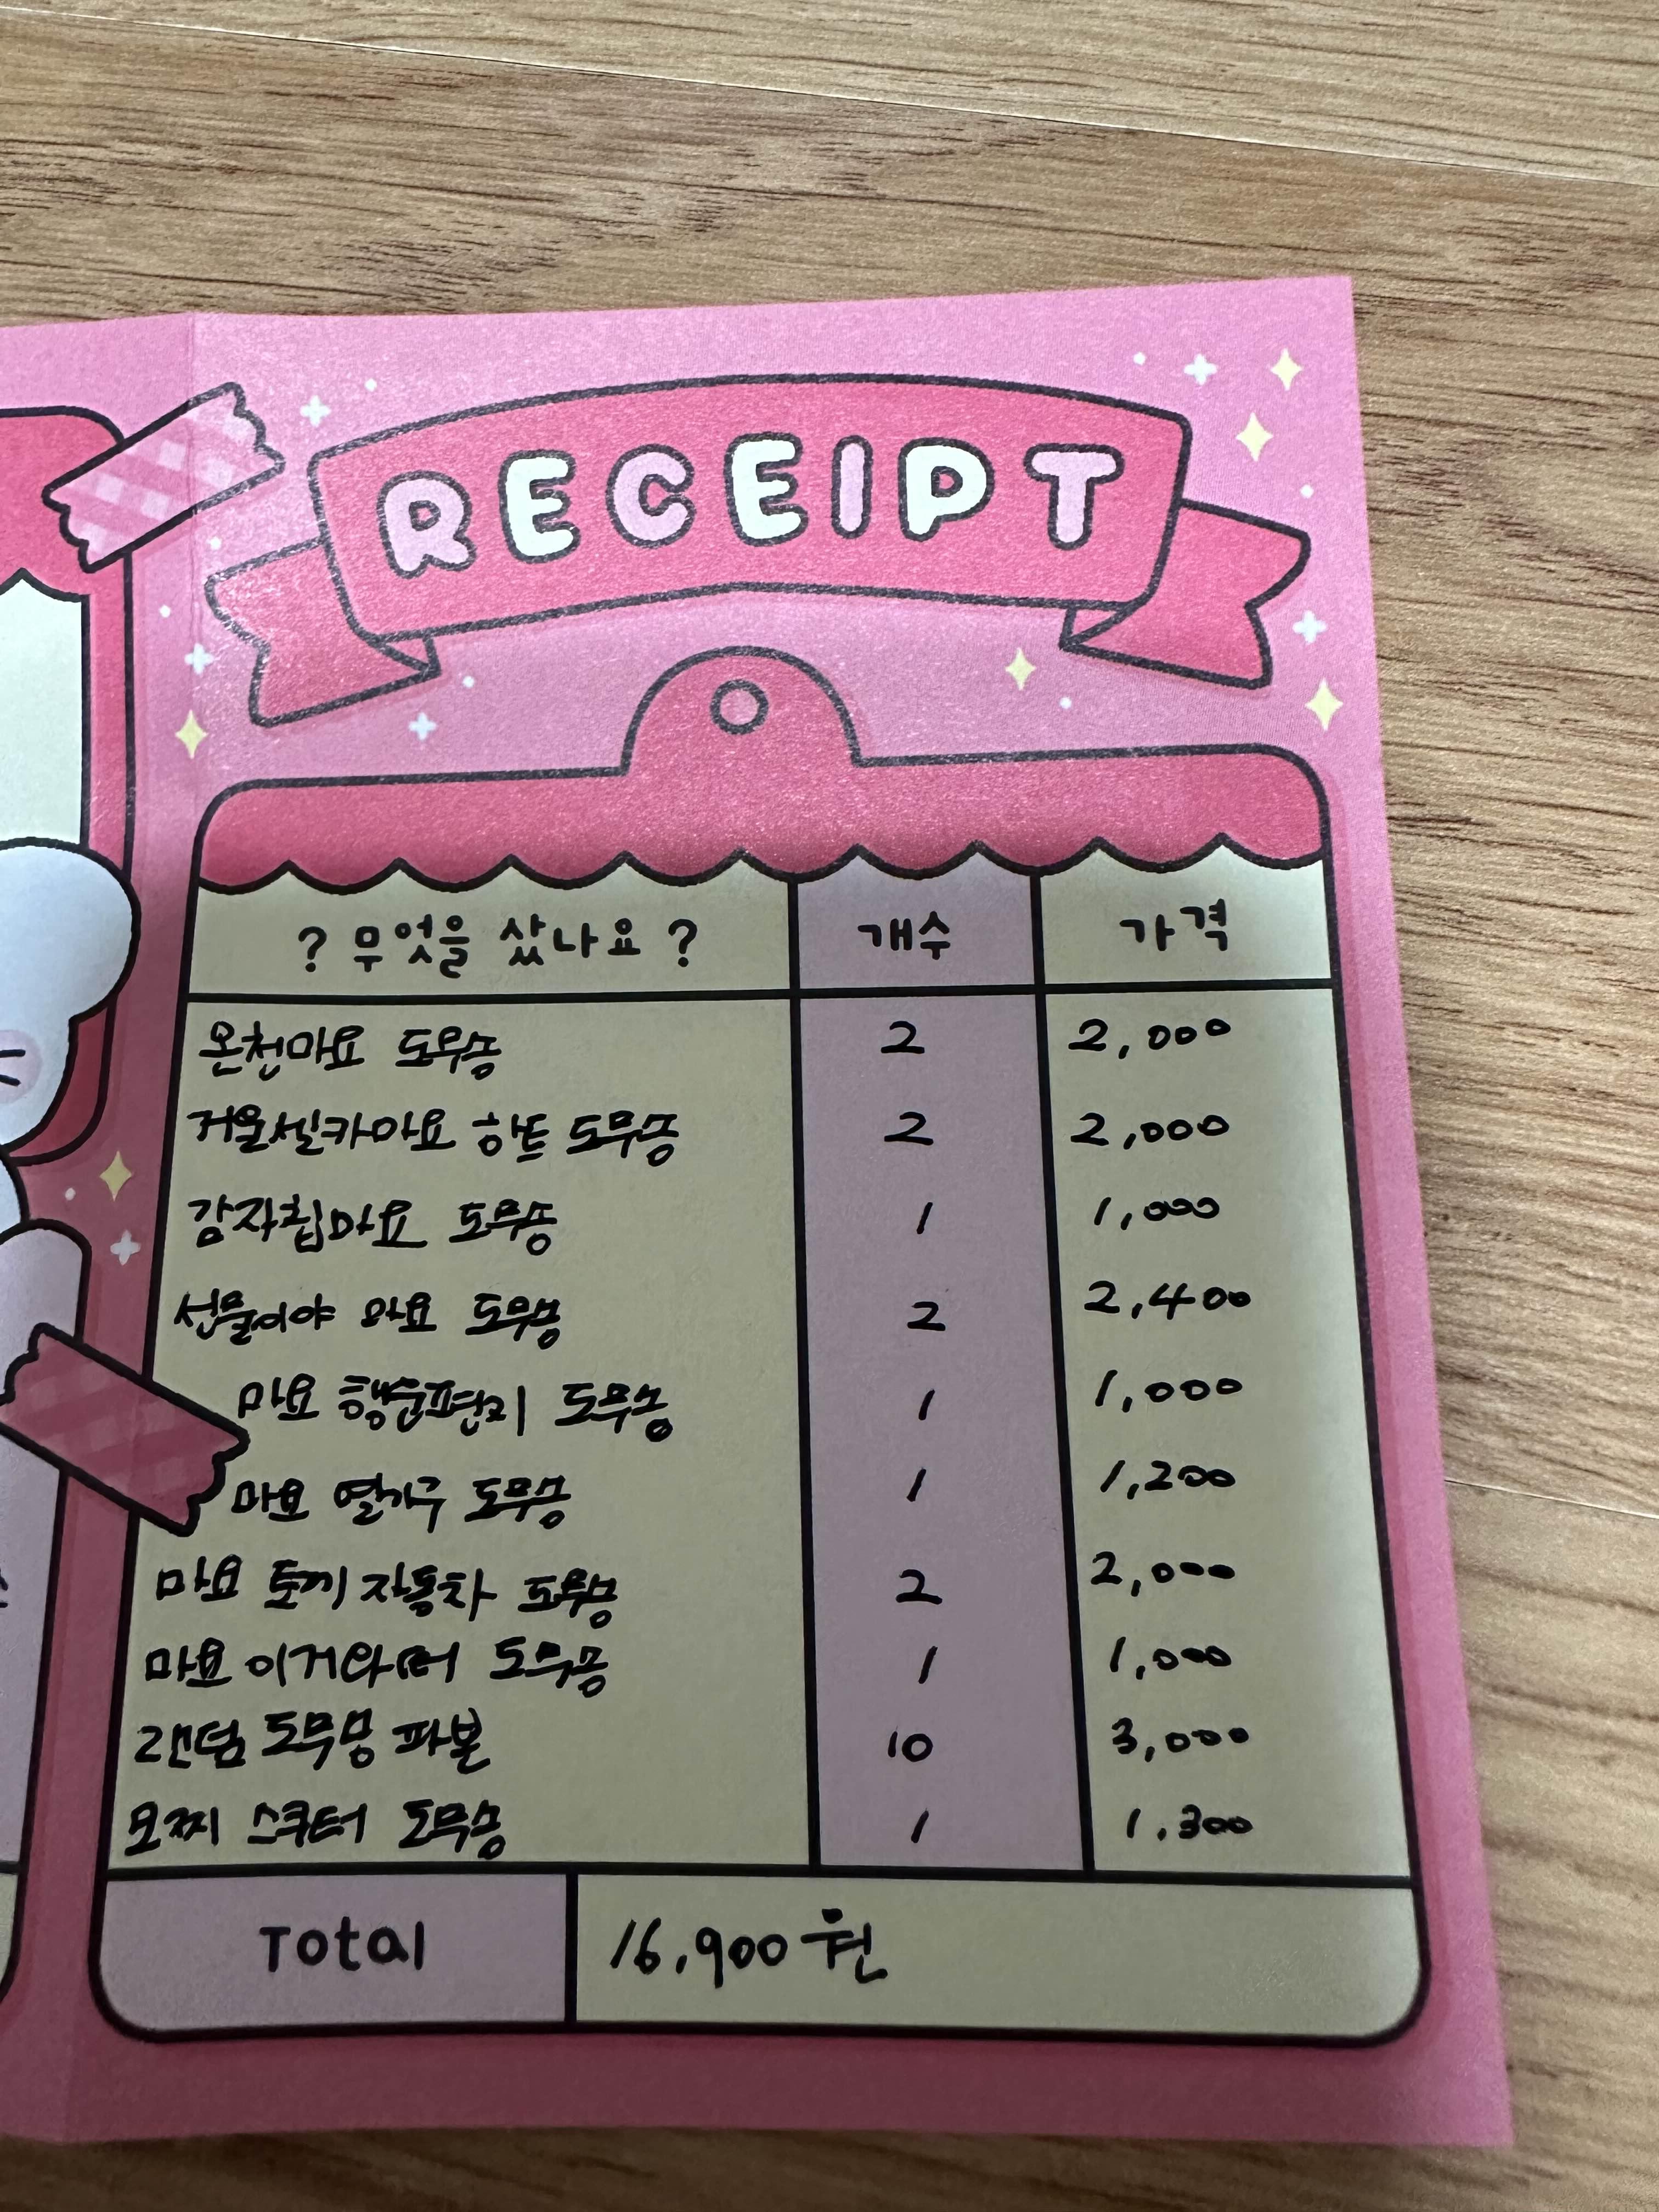 RECEIPT
? 무엇을 샀나요 ? 개수 가격
온천마요 도무송 2 2,000
거울셀카마요 하트 도무송 2 2,000
감자칩마요 도무송 1 1,000
선물이야 마요 도무송 2 2,400
마요 행운편지 도무송 1 1,000
마요 열기구 도무송 1 1,200
마요 토끼 자동차 도무송 2 2,000
마요 도무송 1 1,000
랜덤 도무송 파본 10 3,000
모찌 스쿠터 도무송 1 1,300
Total 16,900원